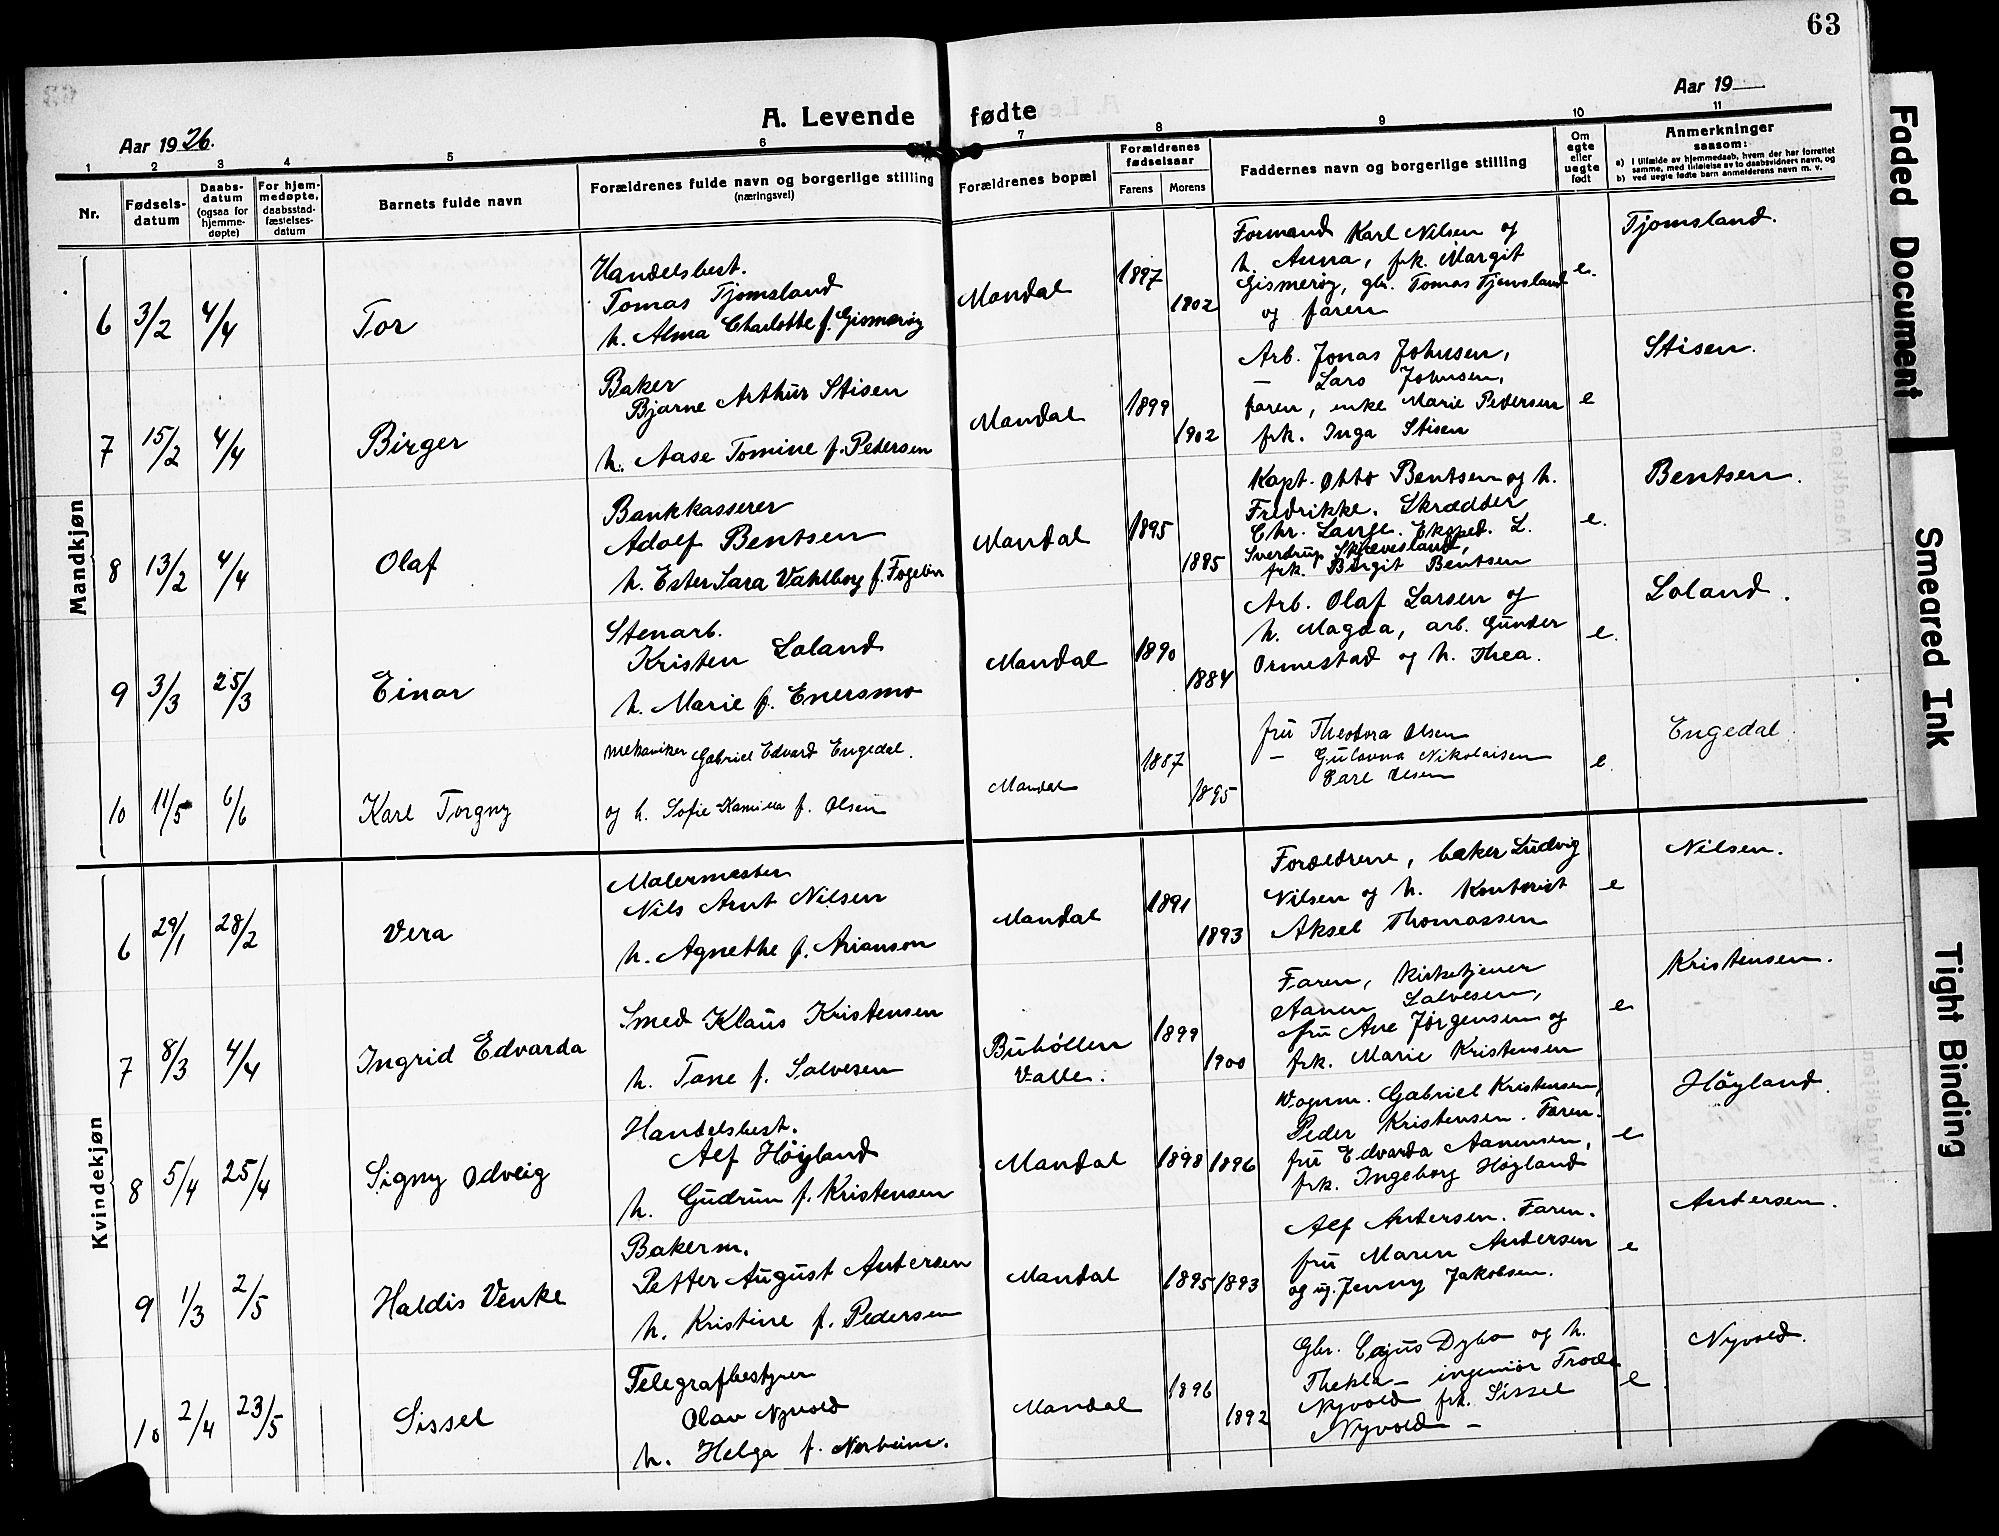 63
A. Levende fødte
Aar 1926.
Aar 19
1 2 3 4 5 6 7 8 9 10 11
Nr.
Fødsels-
datum
Daabs-
datum
(ogsaa for
hjemme-
døpte)
For hjem-
medøpte,
daabsstad-
fæstelses-
datum
Barnets fulde navn
Forældrenes fulde navn og borgerlige stilling
(næringsvei)
Forældrenes bopæl
Forældrenes
fødselsaar
Farens Morens
Faddernes navn og borgerlige stilling
Om
egte
eller
uegte
født
Anmerkninger
saasom:
a) I tilfælde av hjemmedaab, hvem der har forrettet
samme, med tilføielse av to daabsvidners navn, og
b) ved uegte fødte barn anmelderens navn m. v.
Mandkjøn
6 3/2 4/4 Tor
Handelsbest.
Tomas Tjomsland
h. Alma Charlotte f. Gismerøy
Mandal 1897 1902
Formand Karl Nilsen og
h. Anna, frk. Margit
Gismerøy, gbr. Tomas Tjomsland
og faren
e.
Tjomsland.
7 15/2 4/4 Birger
Baker
Bjarne Arthur Stisen
h. Aase Tomine f. Pedersen
Mandal 1899 1902
Arb. Jonas Johnsen,
— Lars Johnsen,
faren, enke Marie Pedersen
frk. Inga Stisen
e
Stisen.
8 13/2 4/4 Olaf
Bankkasserer
Adolf Bentsen
h. Ester Sara Vahlborg f. Fogelin
Mandal 1895 1885
Kapt. Otto Bentsen og h.
Fredrikke. Skrædder
Chr. Lange. Eksped. L.
Sverdrup Skjævesland,
frk. Birgit Bentsen
e.
Bentsen.
9 3/3 25/3 Einar
Stenarb.
Kristen Loland
h. Marie f. Enersmo
Mandal 1890 1884
Arb. Olaf Larsen og
h. Magda, arb. Gunder
Ormestad og h. Thea.
e.
Loland.
10 11/5 6/6 Karl Torgny
mekaniker Gabriel Edvard Engedal.
og h. Sofie Kamilla f. Olsen
Mandal 1887 1895
fru Theodora Olsen
— Gulovna Nikolaisen
Carl Olsen
e.
Engedal.
Kvindekjøn
6 29/1 28/2 Vera
Malermester
Nils Arnt Nilsen
h. Agnethe f. Arianson
Mandal 1891 1893
Forældrene, baker Ludvig
Nilsen og h. Kontorist
Aksel Thomassen
e
Nilsen.
7 8/3 4/4 Ingrid Edvarda
Smed Klaus Kristensen
h. Tane f. Salvesen
Buhöllen
Valle.
1899 1900
Faren, kirketjener
Aanen Salvesen,
fru Ane Jørgensen og
frk. Marie Kristensen
e
Kristensen.
8 5/4 25/4 Signy Odveig
Handelsbest.
Alf Höyland
h. Gudrun f. Kristensen
Mandal 1898 1896
Vognm. Gabriel Kristensen,
Peder Kristensen. Faren.
fru Edvarda Aanensen,
frk. Ingeborg Høyland
e
Höyland.
9 1/3 2/5 Haldis Venke
Bakerm.
Petter August Andersen
h. Kristine f. Pedersen
Mandal 1895 1893
Alf Andersen. Faren.
fru Maren Andersen
og ug. Jenny Jakobsen.
e
Andersen.
10 2/4 23/5 Sissel
Telegrafbestyrer
Olav Nyvold
h. Helga f. Norheim.
Mandal 1896 1892
Gbr. Cajus Dybo og h.
Thekla — ingeniör Frode
Nyvold frk. Sissel
Nyvold —
e
Nyvold.
Faded Document
Smeared Ink
Tight Binding